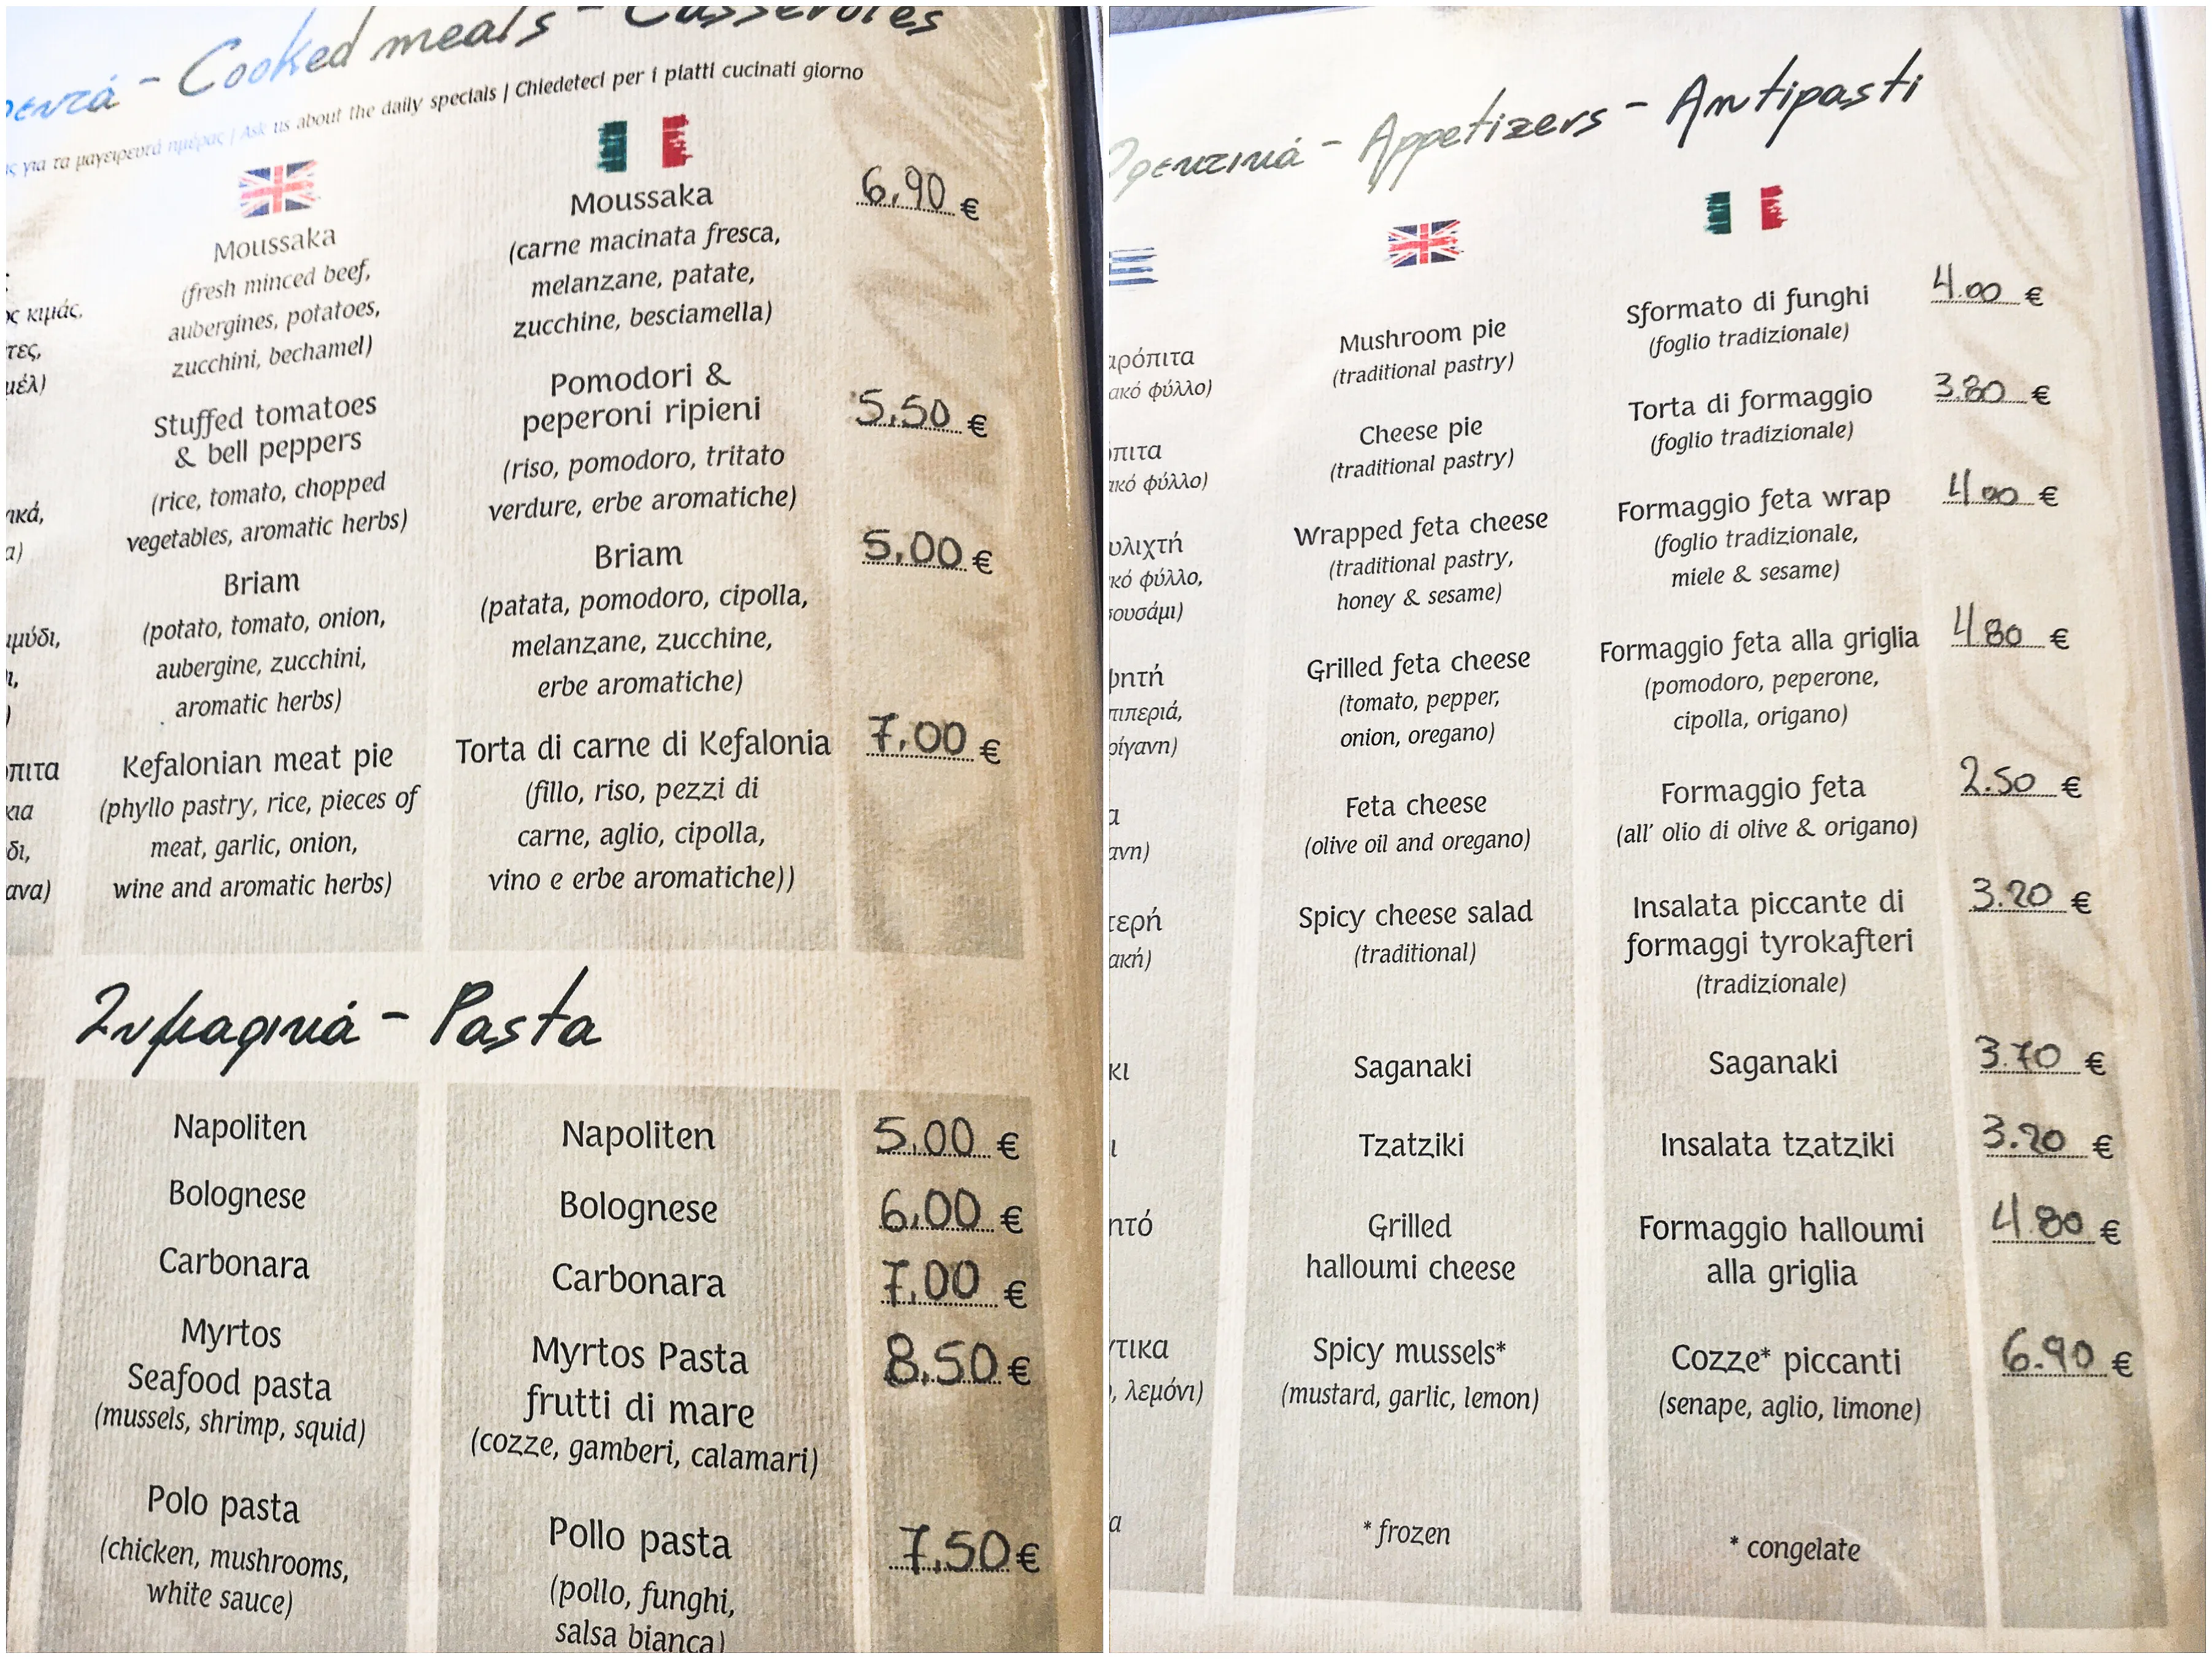 Cooked meals - Casseroles
για τα μαγειρευτά ημέρας | Ask us about the daily specials | Chiedeteci per i piatti cucinati giorno
Moussaka
(fresh minced beef,
aubergines, potatoes,
zucchini, bechamel)
Moussaka
(carne macinata fresca,
melanzane, patate,
zucchine, besciamella)
6,90 €
κιμάς,
Stuffed tomatoes
& bell peppers
(rice, tomato, chopped
vegetables, aromatic herbs)
Pomodori &
peperoni ripieni
(riso, pomodoro, tritato
verdure, erbe aromatiche)
5,50 €
Briam
(potato, tomato, onion,
aubergine, zucchini,
aromatic herbs)
Briam
(patata, pomodoro, cipolla,
melanzane, zucchine,
erbe aromatiche)
5,00 €
Kefalonian meat pie
(phyllo pastry, rice, pieces of
meat, garlic, onion,
wine and aromatic herbs)
Torta di carne di Kefalonia
(fillo, riso, pezzi di
carne, aglio, cipolla,
vino e erbe aromatiche))
7,00 €
Ζυμαρικά - Pasta
Napoliten
Napoliten
5,00 €
Bolognese
Bolognese
6,00 €
Carbonara
Carbonara
7,00 €
Myrtos
Seafood pasta
(mussels, shrimp, squid)
Myrtos Pasta
frutti di mare
(cozze, gamberi, calamari)
8,50 €
Polo pasta
(chicken, mushrooms,
white sauce)
Pollo pasta
(pollo, funghi,
salsa bianca)
7,50 €
- Appetizers - Antipasti
Mushroom pie
(traditional pastry)
Sformato di funghi
(foglio tradizionale)
4.00 €
φύλλο)
Cheese pie
(traditional pastry)
Torta di formaggio
(foglio tradizionale)
3.80 €
φύλλο)
Wrapped feta cheese
(traditional pastry,
honey & sesame)
Formaggio feta wrap
(foglio tradizionale,
miele & sesame)
4.00 €
φύλλο,
Grilled feta cheese
(tomato, pepper,
onion, oregano)
Formaggio feta alla griglia
(pomodoro, peperone,
cipolla, origano)
4.80 €
Feta cheese
(olive oil and oregano)
Formaggio feta
(all' olio di olive & origano)
2.50 €
Spicy cheese salad
(traditional)
Insalata piccante di
formaggi tyrokafteri
(tradizionale)
3.20 €
Saganaki
Saganaki
3.70 €
Tzatziki
Insalata tzatziki
3.20 €
Grilled
halloumi cheese
Formaggio halloumi
alla griglia
4.80 €
Spicy mussels*
(mustard, garlic, lemon)
Cozze* piccanti
(senape, aglio, limone)
6.90 €
λεμόνι)
* frozen
* congelate